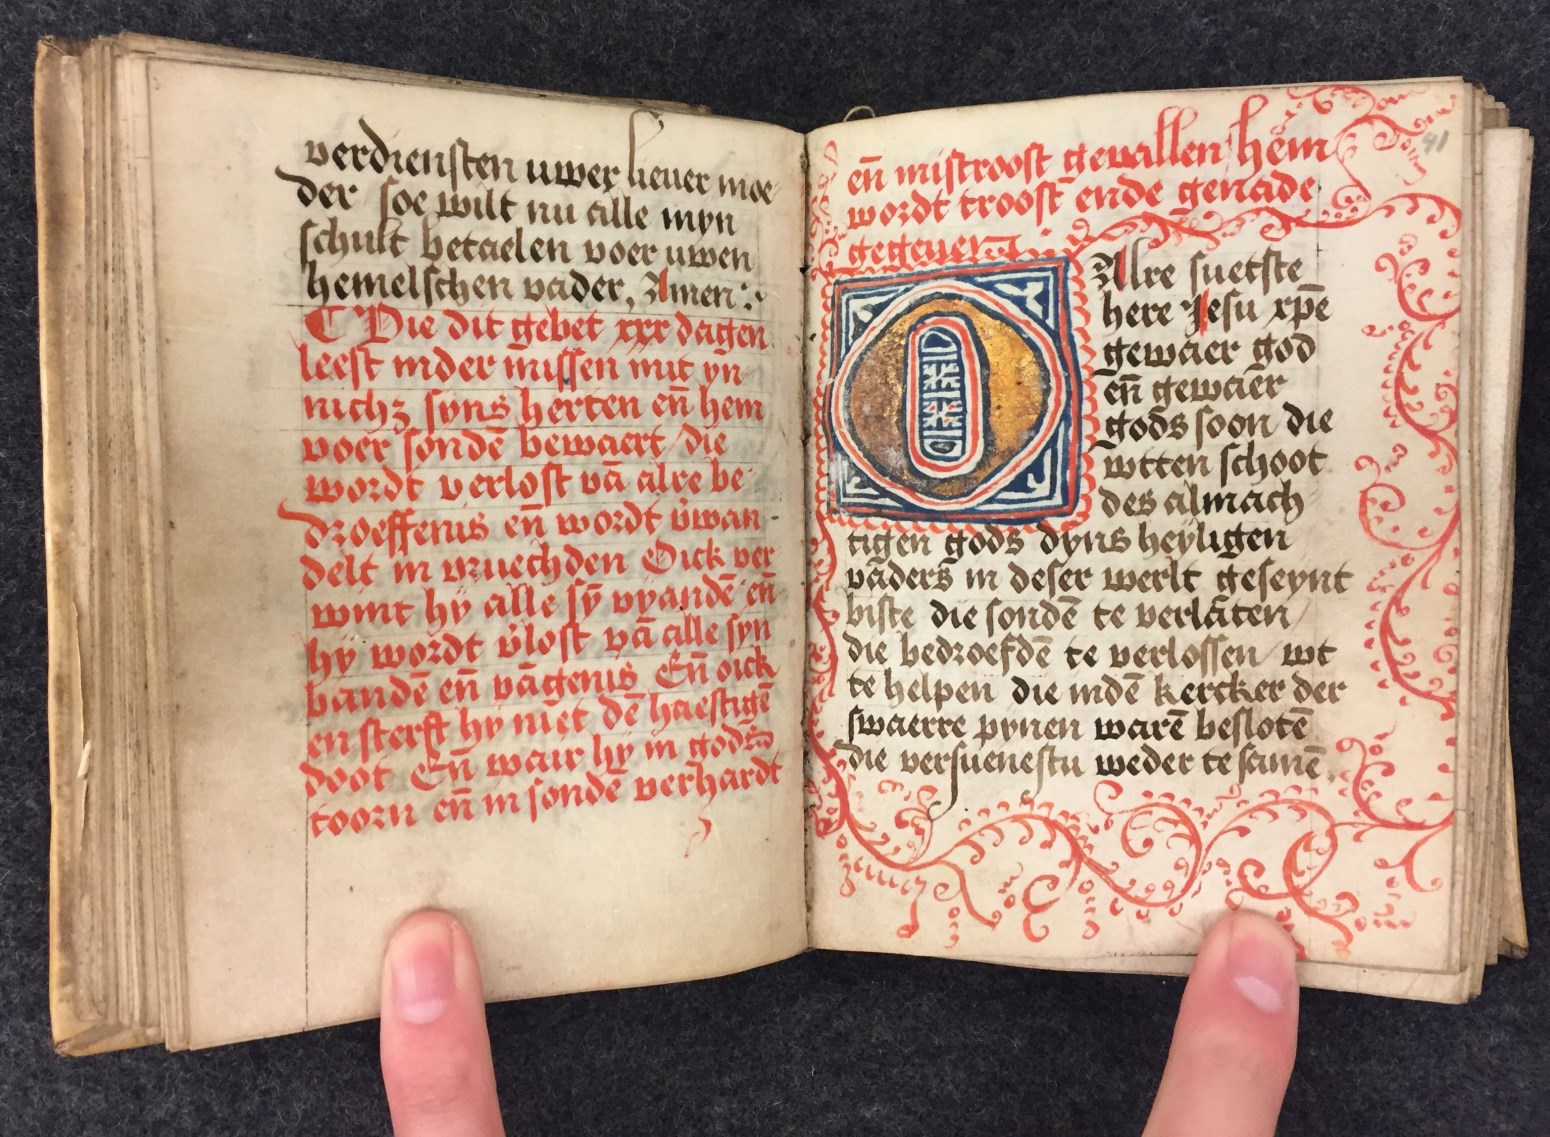 verdiensten uwer liever moe
der soe wilt nu alle myn
schult betaelen voer uwen
hemelschen vader, Amen :.
¶ Die dit gebet xxx dagen
leest inder missen mit yn
nich₃ syns herten en̄ hem
voer sondē bewaert / die
wordt verlost vā alre be
droeffenis en̄ wordt v̄wan
delt in vruechden Oick ver
wint hy alle sȳ vyandē en̄
hy wordt v̄lost vā alle syn
bandē en̄ vāgenis En̄ oick
en sterft hy niet dē haestigē
doot En̄ wair hy in gods
toorn en̄ in sondē verhardt
41
en̄ mistroost gevallen hem
wordt troost ende genade
gegeven
O Alre suetste
here Jesu xpē
gewaer god
en̄ gewaer
gods soon die
wtten schoot
des almach
tigen gods dyns heyligen
vaders in deser werlt geseynt
biste die sondē te verlaten /
die bedroefdē te verlossen / wt
te helpen die indē kercker der
swaerre pynen warē beslotē
die versuenestu weder te samē.